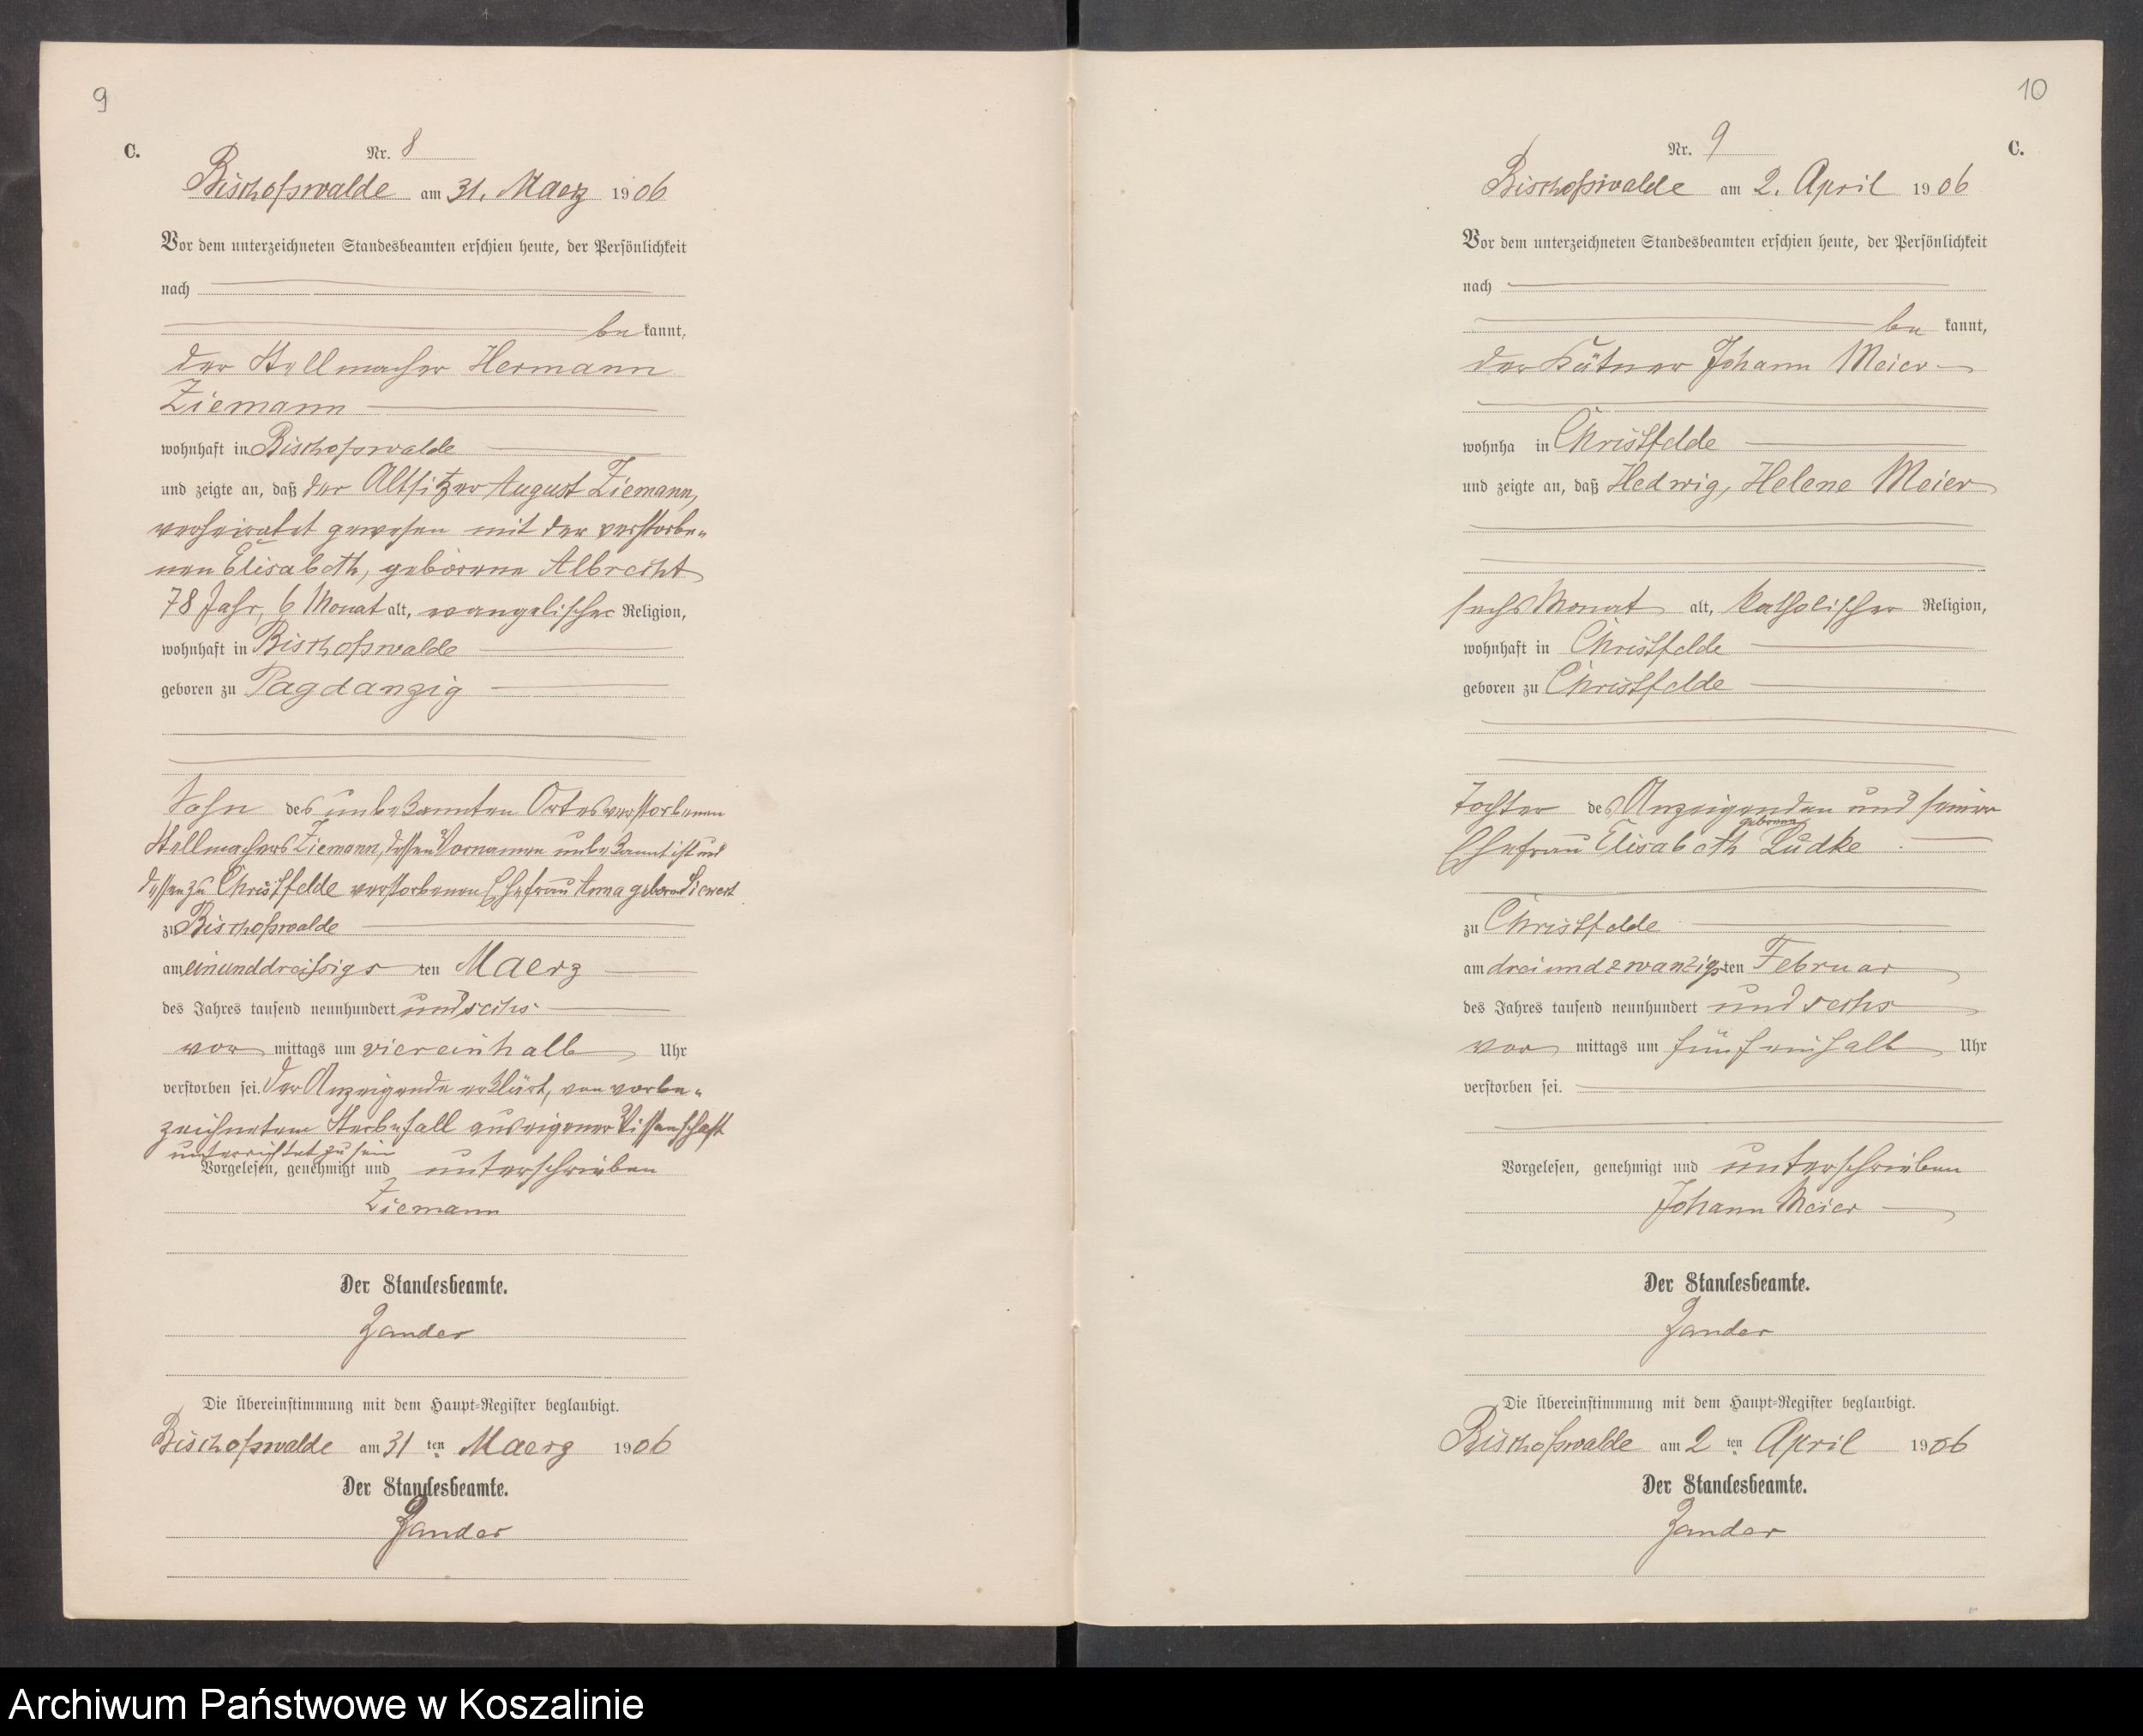 9
C.
Nr. 8
Bischofswalde am 31. Maerz 1906
Vor dem unterzeichneten Standesbeamten erschien heute, der Persönlichkeit
nach
be kannt,
der Stellmacher Hermann
Ziemann
wohnhaft in Bischofswalde
und zeigte an, daß der Altsitzer August Ziemann,
verheiratet gewesen mit der verstorbe-
nen Elisabeth, geborene Albrecht
78 Jahr, 6 Monat alt, evangelischer Religion,
wohnhaft in Bischofswalde
geboren zu Pagdanzig
Sohn des unbekannten Ortes verstorbenen
Stellmachers Ziemann, dessen Vornamen unbekannt ist und
dessen zu Christfelde verstorbenen Ehefrau Anna geborene Siewert
zu Bischofswalde
am einunddreissigsten Maerz
des Jahres tausend neunhundert und sechs
vor mittags um viereinhalb Uhr
verstorben sei. Der Anzeigende erklärt, von vorbe-
zeichnetem Sterbefall aus eigener Wissenschaft
unterrichtet zu sein
Vorgelesen, genehmigt und unterschrieben
Ziemann
Der Standesbeamte.
Zander
Die Übereinstimmung mit dem Haupt-Register beglaubigt.
Bischofswalde am 31 ten Maerz 1906
Der Standesbeamte.
Zander
10
Nr. 9
C.
Bischofswalde am 2. April 1906
Vor dem unterzeichneten Standesbeamten erschien heute, der Persönlichkeit
nach
be kannt,
der Kätner Johann Meier
wohnha in Christfelde
und zeigte an, daß Hedwig, Helene Meier
sechs Monat alt, katholischer Religion,
wohnhaft in Christfelde
geboren zu Christfelde
Tochter des Anzeigenden und seiner
geborene
Ehefrau Elisabeth Lüdke
zu Christfelde
am dreiundzwanzigsten Februar
des Jahres tausend neunhundert und sechs
vor mittags um fünfeinhalb Uhr
verstorben sei.
Vorgelesen, genehmigt und unterschrieben
Johann Meier
Der Standesbeamte.
Zander
Die Übereinstimmung mit dem Haupt-Register beglaubigt.
Bischofswalde am 2 ten April 1906
Der Standesbeamte.
Zander
Archiwum Państwowe w Koszalinie